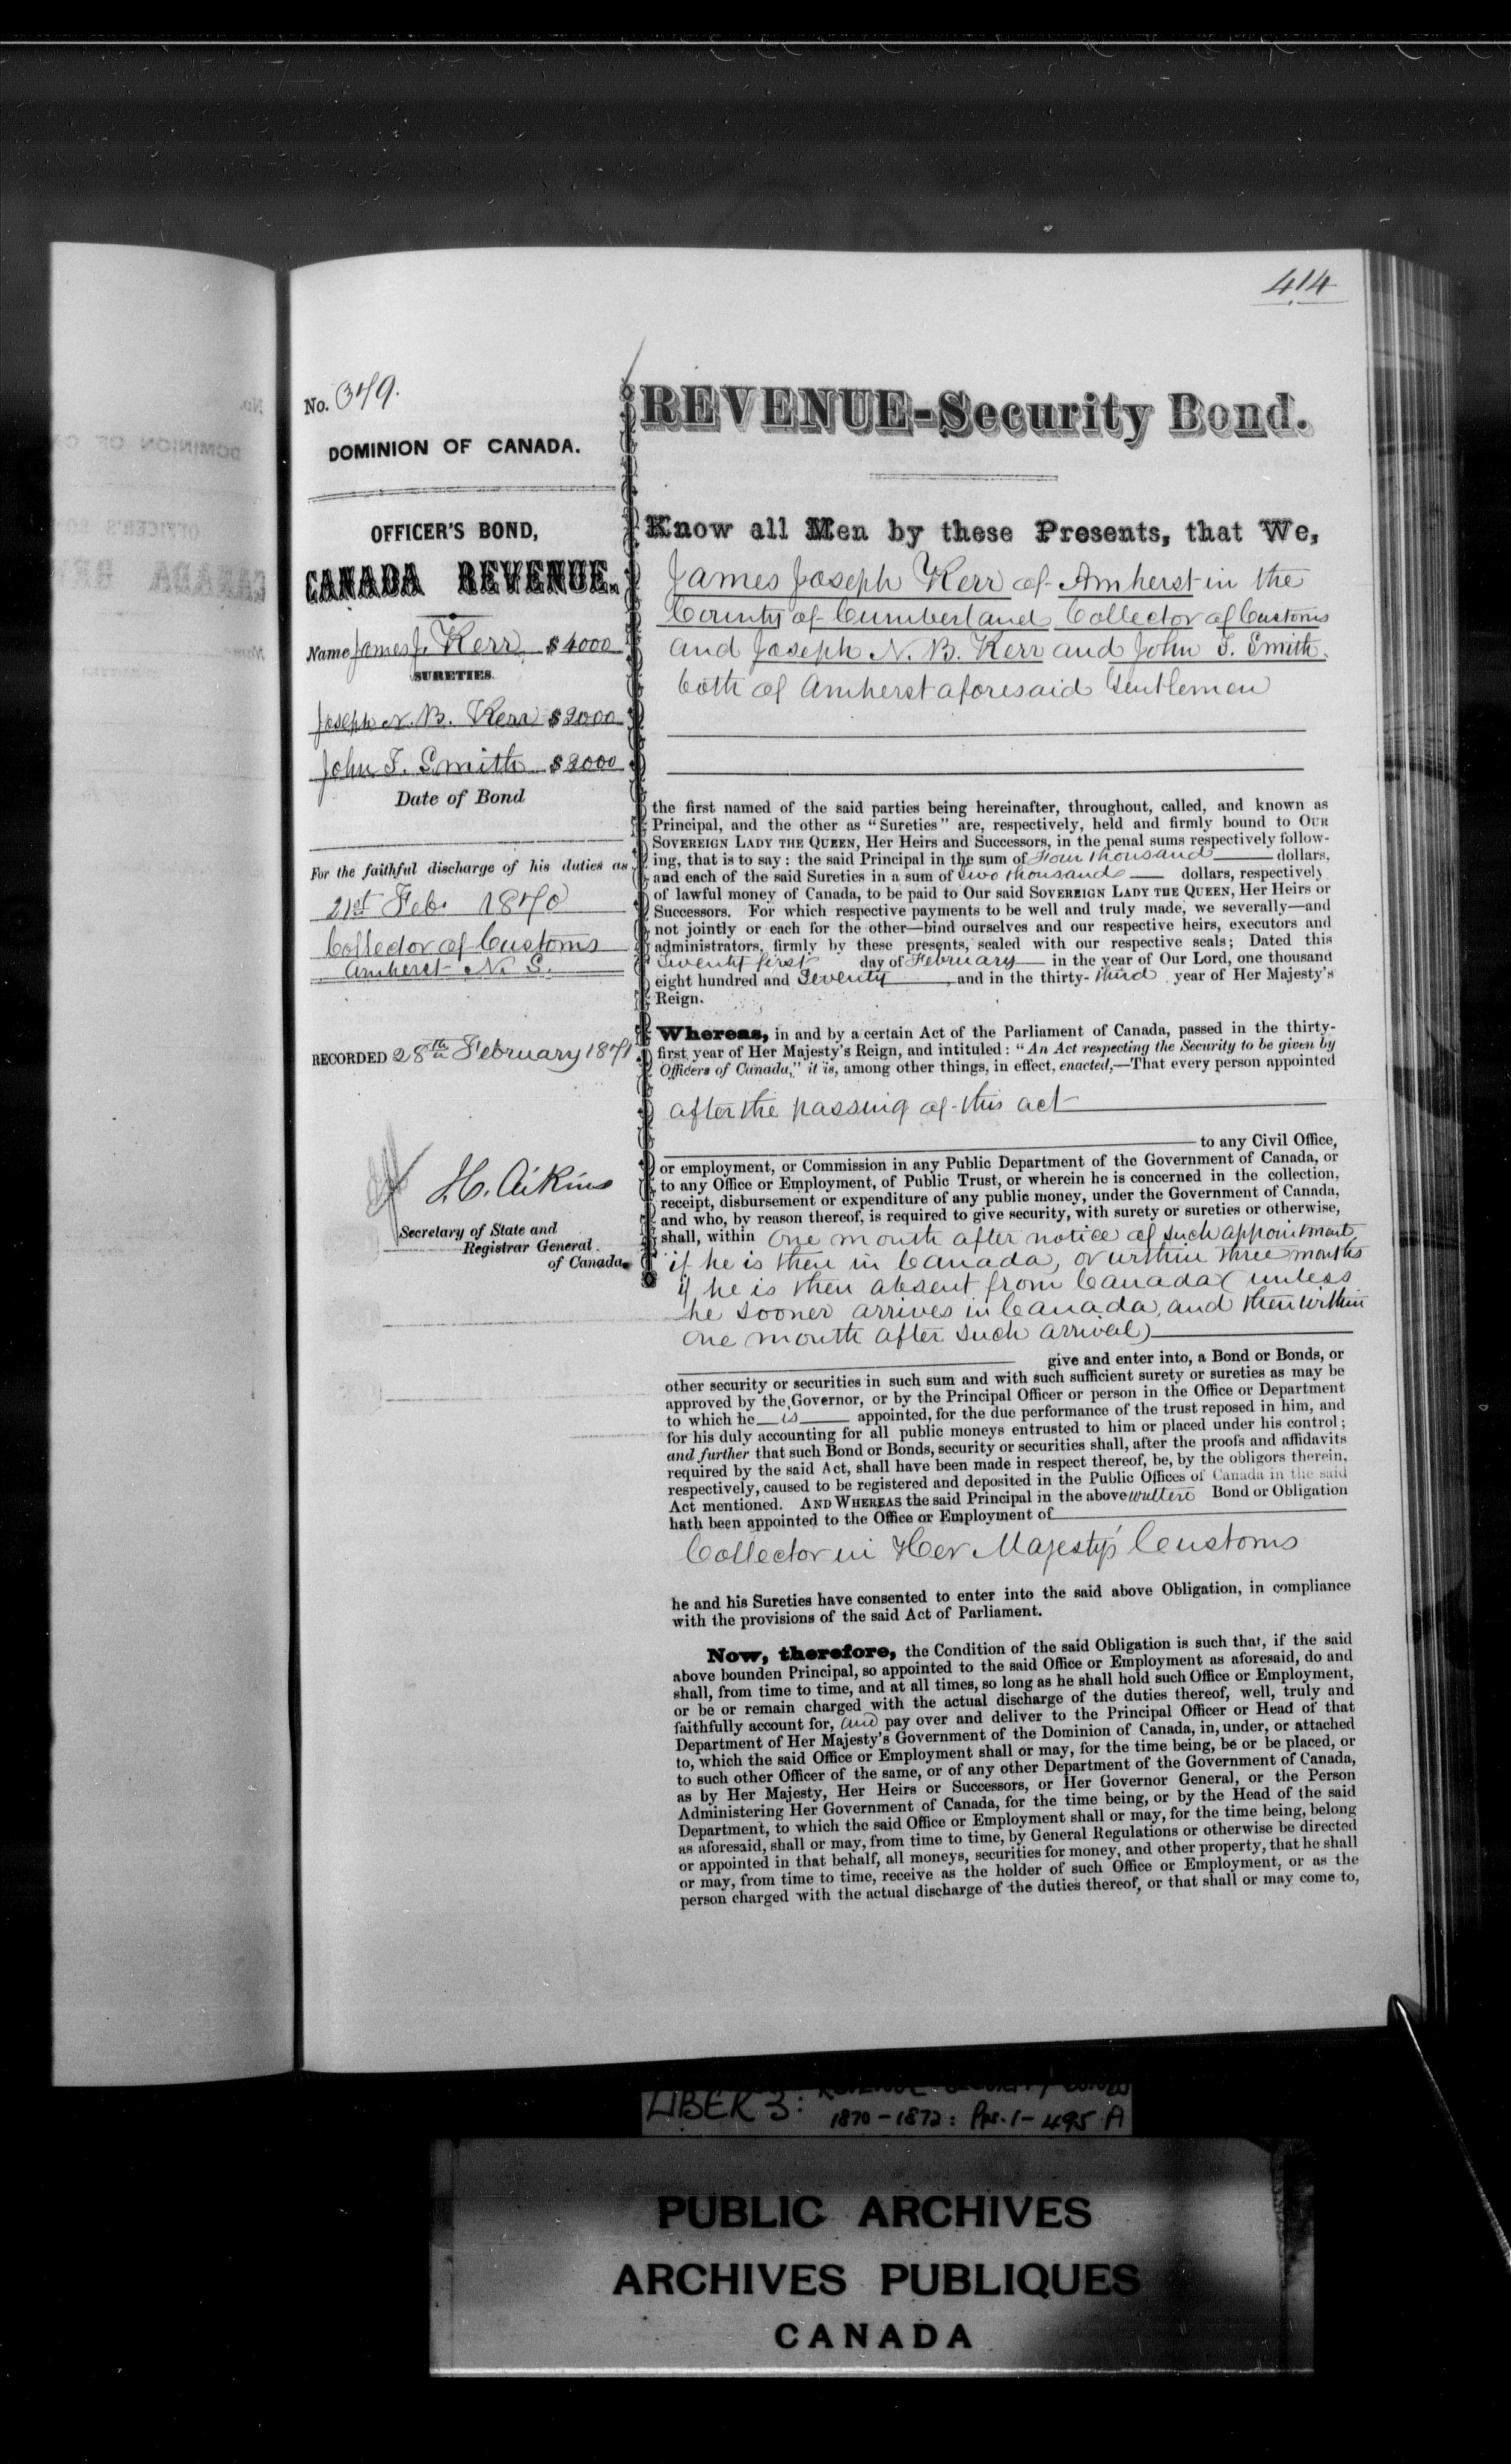 414
No. 349.
DOMINION OF CANADA.
OFFICER'S BOND,
CANADA REVENUE.
Name James J. Kerr $4000
SURETIES.
Joseph N. B. Kerr $2000
John F. Smith $2000
Date of Bond
For the faithful discharge of his duties as
21st Feb. 1870
Collector of Customs
Amherst N. S.
RECORDED 28th February 1871
J. C. Aikins
Secretary of State and
Registrar General
of Canada.
REVENUE-Security Bond.
Know all Men by these Presents, that We,
James Joseph Kerr of Amherst in the
County of Cumberland Collector of Customs
and Joseph N. B. Kerr and John F. Smith.
both of Amherst aforesaid Gentlemen
the first named of the said parties being hereinafter, throughout, called, and known as
Principal, and the other as "Sureties" are, respectively, held and firmly bound to OUR
SOVEREIGN LADY THE QUEEN, Her Heirs and Successors, in the penal sums respectively follow-
ing, that is to say: the said Principal in the sum of Four thousand dollars,
and each of the said Sureties in a sum of two thousand dollars, respectively
of lawful money of Canada, to be paid to Our said SOVEREIGN LADY THE QUEEN, Her Heirs or
Successors. For which respective payments to be well and truly made, we severally—and
not jointly or each for the other—bind ourselves and our respective heirs, executors and
administrators, firmly by these presents, sealed with our respective seals; Dated this
twenty first day of February in the year of Our Lord, one thousand
eight hundred and Seventy, and in the thirty-third year of Her Majesty's
Reign.
Whereas, in and by a certain Act of the Parliament of Canada, passed in the thirty-
first year of Her Majesty's Reign, and intituled: "An Act respecting the Security to be given by
Officers of Canada," it is, among other things, in effect, enacted,—That every person appointed
after the passing of this act
to any Civil Office,
or employment, or Commission in any Public Department of the Government of Canada, or
to any Office or Employment, of Public Trust, or wherein he is concerned in the collection,
receipt, disbursement or expenditure of any public money, under the Government of Canada,
and who, by reason thereof, is required to give security, with surety or sureties or otherwise,
shall, within one month after notice of such appointment,
if he is then in Canada, or within three months
if he is then absent from Canada (unless
he sooner arrives in Canada, and then within
one month after such arrival)
give and enter into, a Bond or Bonds, or
other security or securities in such sum and with such sufficient surety or sureties as may be
approved by the Governor, or by the Principal Officer or person in the Office or Department
to which he is appointed, for the due performance of the trust reposed in him, and
for his duly accounting for all public moneys entrusted to him or placed under his control;
and further that such Bond or Bonds, security or securities shall, after the proofs and affidavits
required by the said Act, shall have been made in respect thereof, be, by the obligors therein,
respectively, caused to be registered and deposited in the Public Offices of Canada in the said
Act mentioned. AND WHEREAS the said Principal in the above written Bond or Obligation
hath been appointed to the Office or Employment of
Collector in Her Majesty's Customs
he and his Sureties have consented to enter into the said above Obligation, in compliance
with the provisions of the said Act of Parliament.
Now, therefore, the Condition of the said Obligation is such that, if the said
above bounden Principal, so appointed to the said Office or Employment as aforesaid, do and
shall, from time to time, and at all times, so long as he shall hold such Office or Employment,
or be or remain charged with the actual discharge of the duties thereof, well, truly and
faithfully account for, and pay over and deliver to the Principal Officer or Head of that
Department of Her Majesty's Government of the Dominion of Canada, in, under, or attached
to, which the said Office or Employment shall or may, for the time being, be or be placed, or
to such other Officer of the same, or of any other Department of the Government of Canada,
as by Her Majesty, Her Heirs or Successors, or Her Governor General, or the Person
Administering Her Government of Canada, for the time being, or by the Head of the said
Department, to which the said Office or Employment shall or may, for the time being, belong
as aforesaid, shall or may, from time to time, by General Regulations or otherwise be directed
or appointed in that behalf, all moneys, securities for money, and other property, that he shall
or may, from time to time, receive as the holder of such Office or Employment, or as the
person charged with the actual discharge of the duties thereof, or that shall or may come to,
LIBER 3: REVENUE SECURITY BONDS
1870-1872: Pps. 1-495 A
PUBLIC ARCHIVES
ARCHIVES PUBLIQUES
CANADA